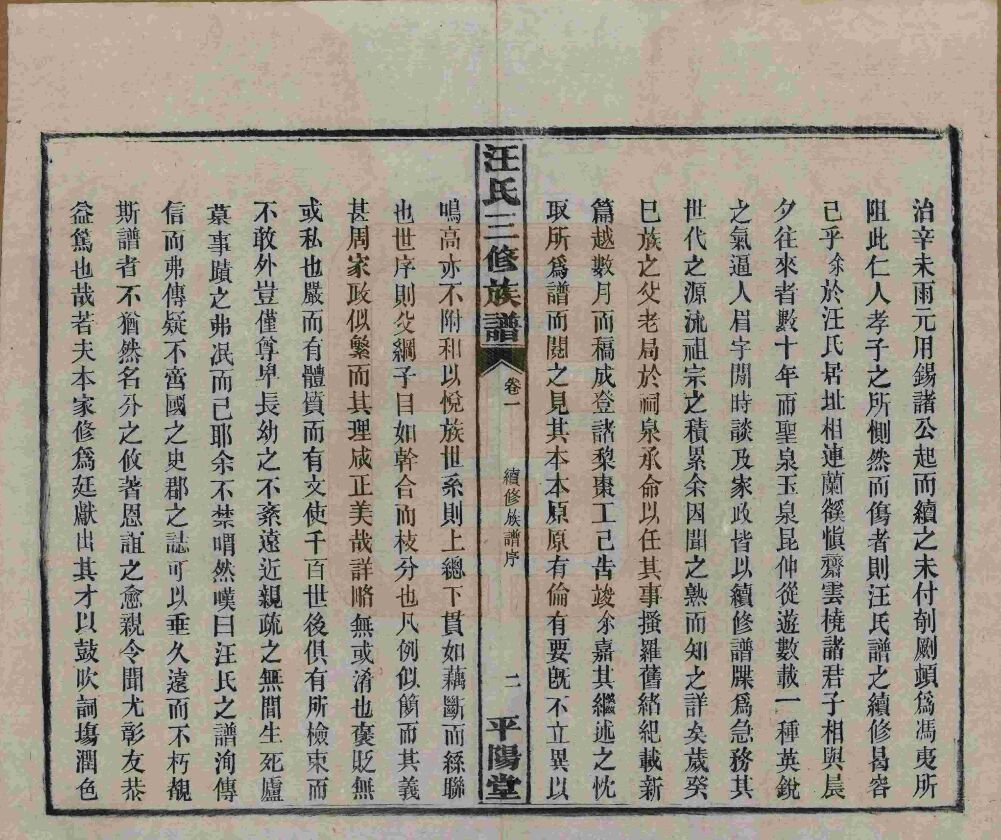 治辛未雨元用錫諸公起而續之未付剞劂頓爲馮夷所
阻此仁人孝子之所惻然而傷者則汪氏譜之續修曷容
已乎余於汪氏居址相連蘭谿愼齋雲橈諸君子相與晨
夕往來者數十年而聖泉玉泉昆仲從遊數載一種英銳
之氣逼人眉宇閒時談及家政皆以續修譜牒爲急務其
世代之源流祖宗之積累余因聞之熟而知之詳矣歲癸
巳族之父老局於祠泉承命以任其事搔羅舊緒紀載新
篇越數月而稿成登諸梨棗工已告竣余嘉其繼述之忱
取所爲譜而閱之見其本本原原有倫有要旣不立異以
汪氏三修族譜
卷一
續修族譜序
二
平陽堂
鳴高亦不附和以悅族世系則上總下貫如藕斷而絲聯
也世序則父綱子目如幹合而枝分也凡例似簡而其義
甚周家政似繁而其理咸正美哉詳略無或淆也褒貶無
或私也嚴而有體憤而有文使千百世後俱有所檢束而
不敢外豈僅尊卑長幼之不紊遠近親疏之無間生死廬
墓事蹟之弗冺而已耶余不禁喟然嘆曰汪氏之譜洵傳
信而弗傳疑不啻國之史郡之誌可以垂久遠而不朽覩
斯譜者不猶然名分之攸著恩誼之愈親令聞尤彰友恭
益篤也哉若夫本家修爲廷獻出其才以鼓吹詞塲潤色